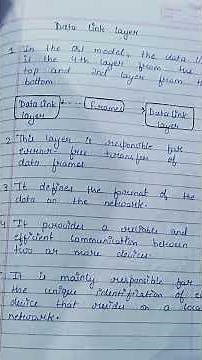 Data link layer
1. In the OSI model, the data li
is the 4th layer from the
top and 2nd layer from t
bottom
Data link
layer
Frames
Data link
layer
2. This layer is responsible for
error free transfer of
data frames
3. It defines the format of the
data on the network.
4. It provides a reliable and
efficient communication between
two or more devices.
It is mainly responsible for
the unique identification of e
device that resides on a loca
network.